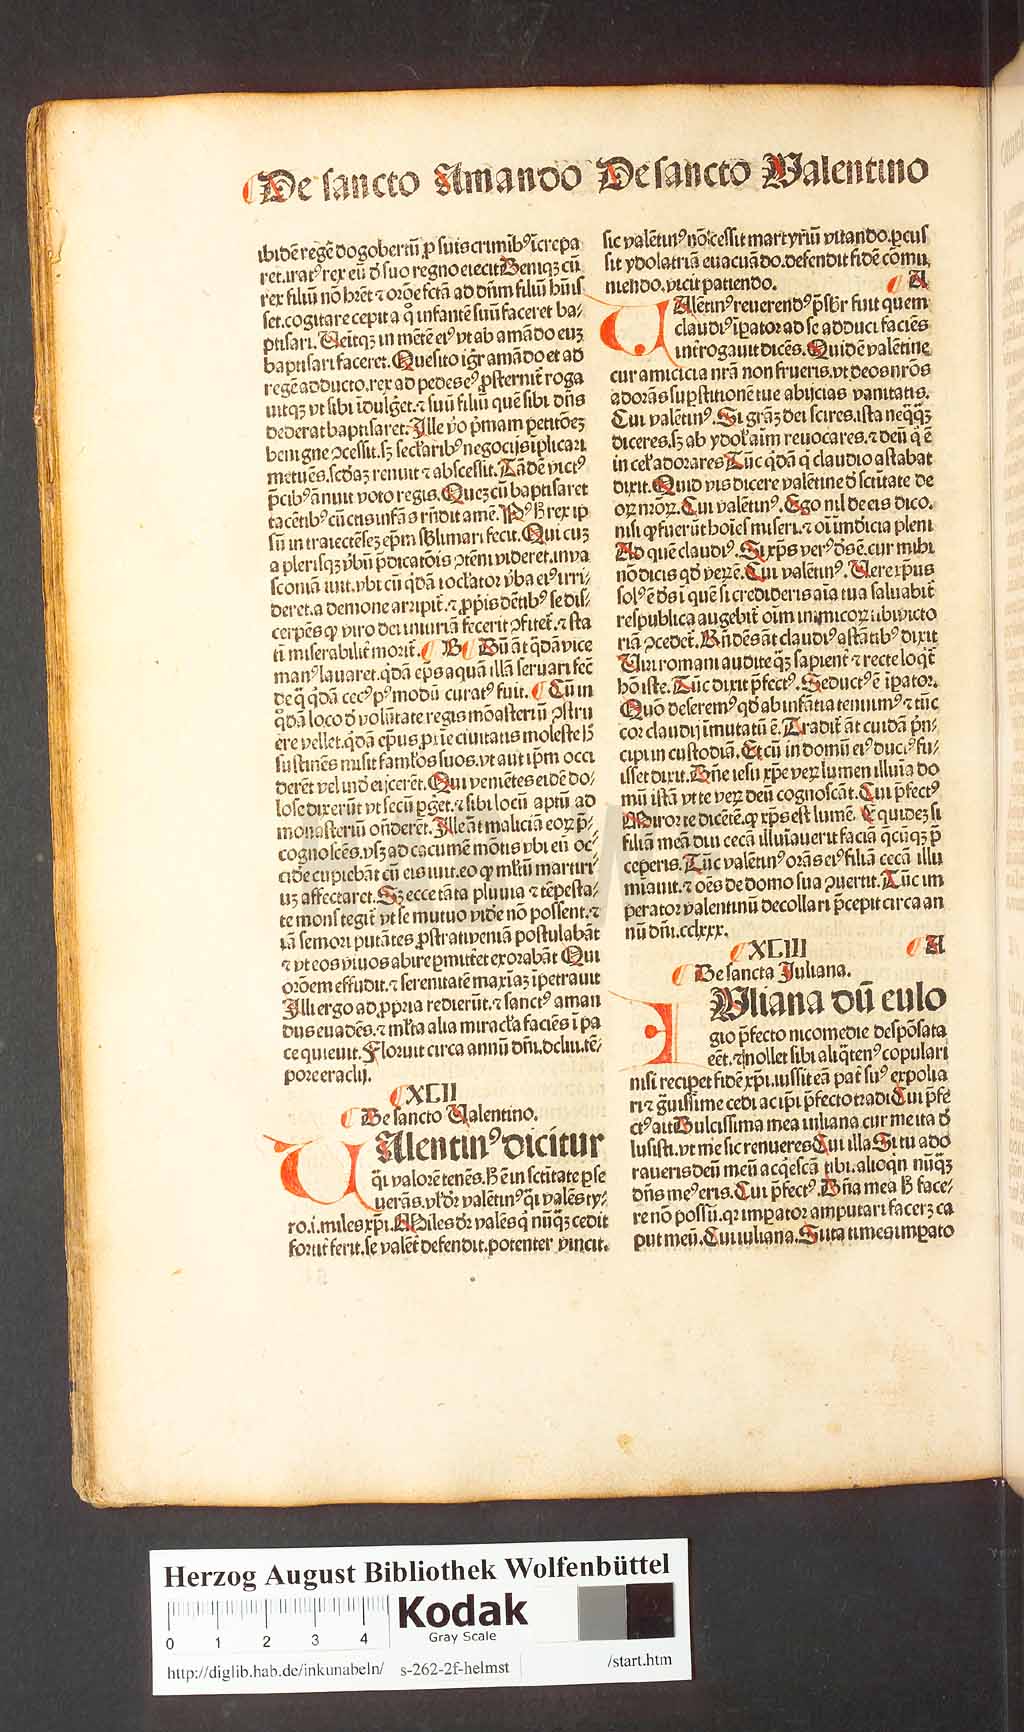 De sancto Amando De sancto Valentino
ibidē regē dogobertū ꝓ suis crimībꝰ īcrepa
ret. iratꝰ rex eū de suo regno eiecit Deniqꝫ cū
rex filiū nō hr̄et ⁊ orōe fctā ad dn̄m filiū hūis
set. cogitare cepit a q̄ infantē suū faceret ba-
ptisari. Ueitqꝫ in mētē eiꝰ vt ab amādo euꝫ
baptisari faceret. Quesito igr̄ amādo et ad
regē adducto. rex ad pedes eꝰ ꝓsternit̄ roga
uitqꝫ vt sibi īdulgꝫet. ⁊ suū filiū quē sibi dn̄s
dederat baptisaret. Ille v̄o p̄mam petitōeꝫ
benigne ꝯcessit. sꝫ secl'aribꝰ negocijs īplicari
metuēs. scdaꝫ renuit ⁊ abscessit. Tādē victꝰ
p̄cibꝰ ānuit voto regis. Queꝫ cū baptisaret
tacētibꝰ cūctis infās rn̄dit amē. Pꝰ h̄ rex ip
sū in traiectēseꝫ ep̄m sublimari fecit. Qui cuꝫ
a plerisqꝫ v̄bū p̄dicatōis ꝯtēni videret. in va
sconiā iuit. vbi cū q̄dā ioclator v̄ba eiꝰ irri-
deret. a demone arripit̄. ⁊ ꝓpr̄ijs dētibꝰ se dis-
cerpēs qꝫ viro dei iniuriā fecerit ꝯfitet̄. ⁊ sta
ti miserabilit̄ morit̄. B Dū āt q̄dā vice
manꝰ lauaret. q̄dā ep̄s aquā illā seruari fec̄
de q̄ q̄dā cecꝰ pꝰ modū curatꝰ fuit. Cū in
q̄dā loco de volūtate regis mōasteriū ꝯstru
ere vellet. q̄dā ep̄us. ꝓxīe ciuitatis moleste h̄
sustinēs misit famlos suos. vt aut ip̄m occi
derēt vel inde eijcerēt. Qui veniētes eidē do-
lose dixerūt vt secū ꝑgꝫet. ⁊ sibi locū aptū ad
monasteriū on̄derēt. Ille āt maliciā eoꝝ p̄-
cognoscēs. vsqꝫ ad cacumē mōtis vbi eū oc-
cidere cupiebāt cū eis iuit. eo qꝫ mltū martiri-
uꝫ affectaret. Sꝫ ecce tāta pluuia ⁊ tēpesta-
te mons tegit̄ vt se mutuo videre nō possent. ⁊
iā se mori putātes ꝓstrati veniā postulabāt
⁊ vt eos viuos abire ꝑmittet exorabāt Qui
orōem effudit. ⁊ serenitatē maxīaꝫ īpetrauit
Illi ergo ad ꝓpria redierūt. ⁊ sanctꝰ aman
dus euadēs. ⁊ mlta alia miracla faciēs ī pa
ce quieuit. Floruit circa annū dn̄i. dcliii. tē-
pore eraclij.
XLII
De sancto Ualentino.
UAlentinꝰ dicitur
q̄i valorē tenēs. h̄ ē in sctitate ꝑse
uerās. vl' dr̄ valētinꝰ q̄i valēs ty-
ro. i. miles xp̄i. Miles dr̄ valēs q̄ nūqꝫ cedit
fortit̄ ferit. se valet̄ defendit. potenter vincit.
sic valētinꝰ nō cessit martyriū vitando. ꝑcus
sit ydolatriā euacuādo. defendit fidē cōmu
niendo. vicit patiendo. A
UAlētinꝰ reuerendꝰ p̄sbr̄ fuit quem
claudiꝰ īpator ad se adduci faciēs
interrogauit dicēs. Quid ē valētine
cur amicicia nr̄a non frueris. vt deos nr̄os
adorās supstitionē tue abijcias vanitatis.
Cui valētinꝰ. Si gr̄aꝫ dei scires. ista neqꝫqꝫ
diceres. sꝫ ab ydol' aīm reuocares. ⁊ deū q̄ ē
in celꝭ adorares Tūc q̄dā q̄ claudio astabat
dixit. Quid vis dicere valētine de sctitate de
oꝝ nr̄oꝝ. Cui valētinꝰ. Ego nil de eis dico.
nisi qꝫ fuerūt hoīes miseri. ⁊ oī imūdicia pleni
Ad quē claudiꝰ. Si xp̄s verꝰ ds̄ ē. cur mihi
nō dicis qd̄ veꝝ ē. Cui valētinꝰ. Uere xp̄us
solꝰ ē ds̄ ī quē si credideris aīa tua saluabit̄
respublica augebit̄ oīm inimicoꝝ tibi victo
riā ꝯcedet̄. Rn̄dēs āt claudiꝰ astātibꝰ dixit
Uiri romani audite q̄ꝫ sapient̄ ⁊ recte loqt̄
hō iste. Tūc dixit p̄fectꝰ. Seductꝰ ē īpator.
Quō deseremꝰ qd̄ ab infātia tenuimꝰ ⁊ tūc
cor claudij īmutatū ē. Tradit̄ āt cuidā p̄n-
cipi in custodiā. Et cū in domū eiꝰ ductꝰ fu-
isset dixit. Dn̄e iesu xp̄e veꝝ lumen illuīa do
mū istā vt te veꝝ deū cognoscāt. Cui p̄fectꝰ
Miror te dicētē. qꝫ xp̄s est lumē. Equidem si
filiā meā diu cecā illuīauerit faciā q̄cūqꝫ p̄
ceperis. Tūc valētinꝰ orās eiꝰ filiā cecā illu
mīauit. ⁊ oēs de domo sua ꝯuertit. Tūc im
perator valentinū decollari p̄cepit circa an
nū dn̄i. cclxxx.
XLIII A
De sancta Juliana.
IUliana dū eulo
gio p̄fecto nicomedie despōsata
eet̄. ⁊ nollet sibi aliq̄tenꝰ copulari
nisi reciꝑet fidē xp̄i. iussit eā pat̄ suꝰ expolia
ri ⁊ gͣuissime cedi ac ip̄i p̄fecto tradi Cui p̄fe
ctꝰ ait Dulcissima mea iuliana cur me ita de
lusisti. vt me sic renueres Cui illa Si tu ado
raueris deū meū acqescā tibi. alioqn nūqꝫ
dn̄s meꝰ eris. Cui p̄fectꝰ. Dn̄a mea h̄ face-
re nō possū. qꝛ imꝑator amputari faceꝫ ca
put meū. Cui iuliana. Si ita times impato
Herzog August Bibliothek Wolfenbüttel
0 1 2 3 4
Kodak
Gray Scale
http://diglib.hab.de/inkunabeln/ s-262-2f-helmst /start.htm